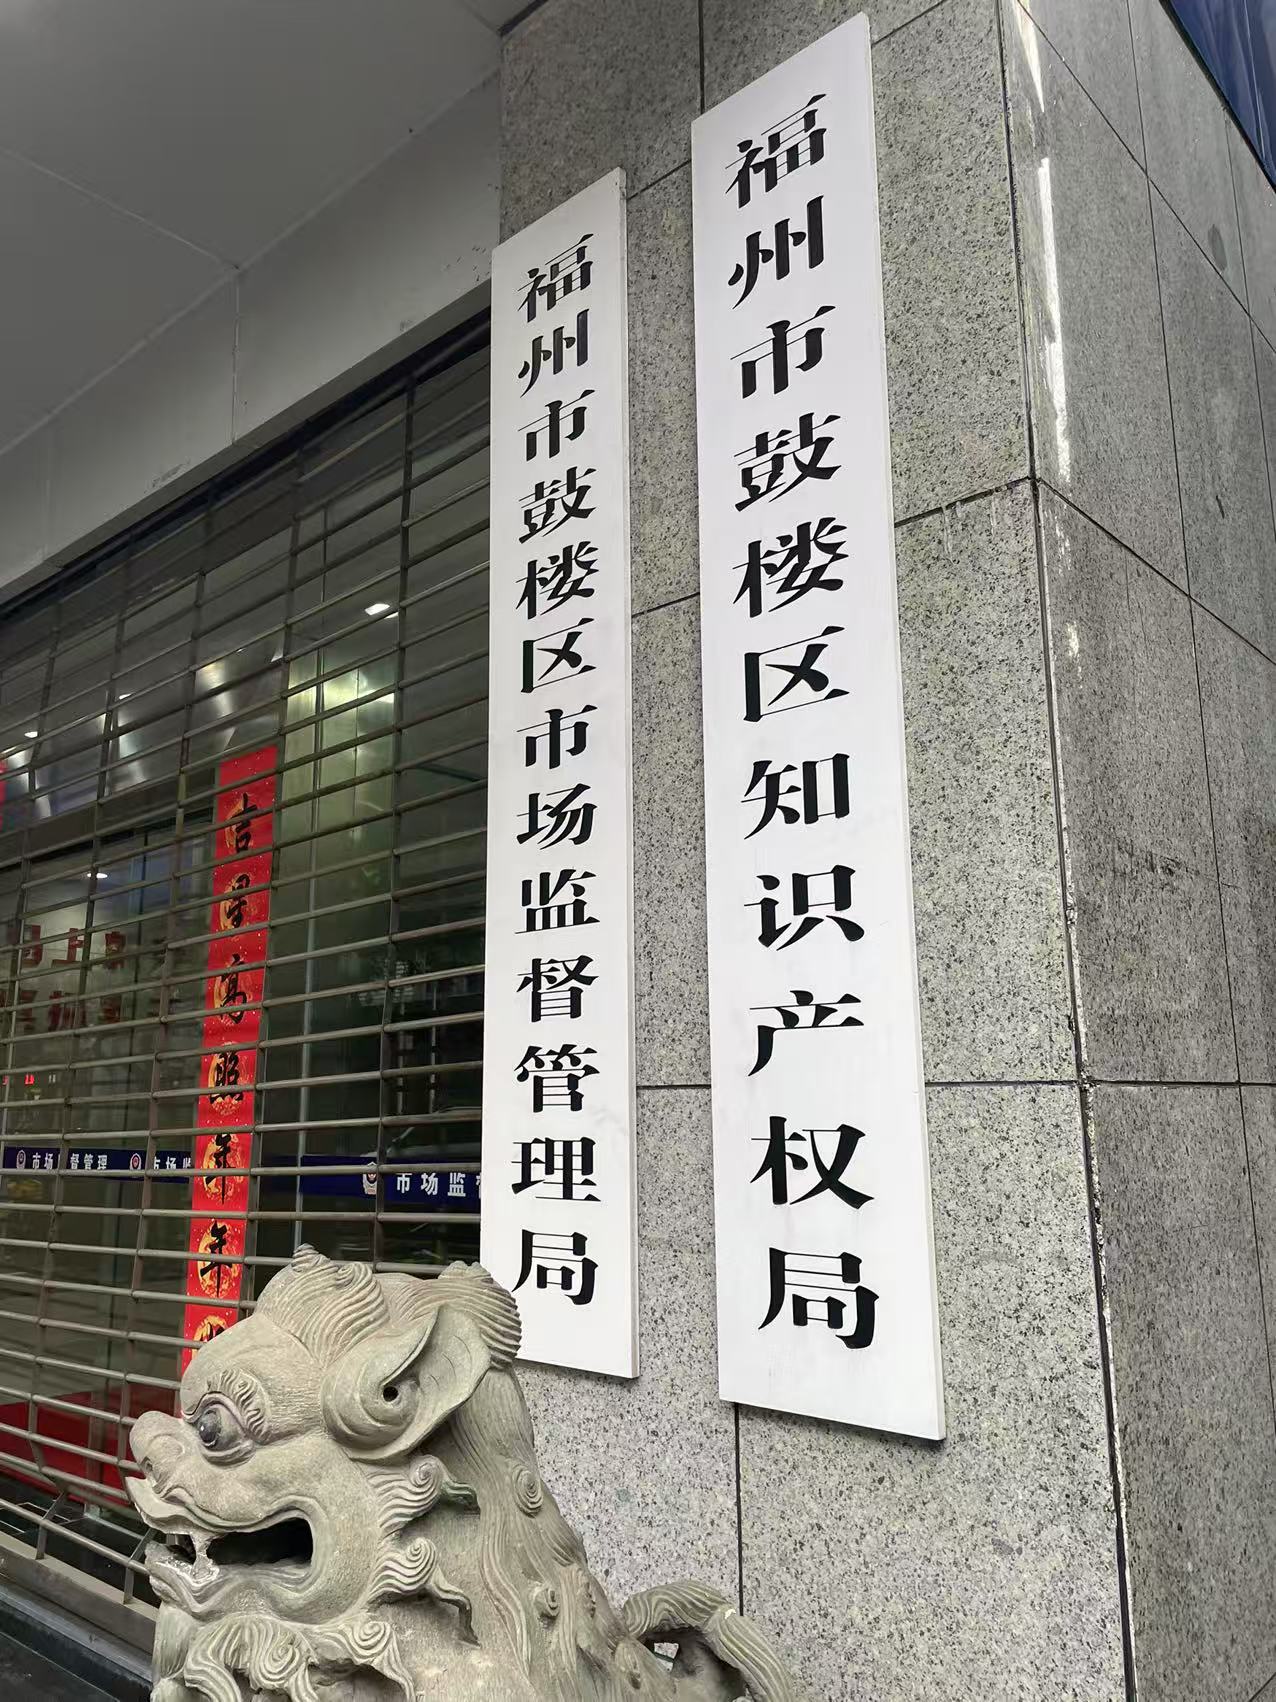 福州市鼓楼区知识产权局
福州市鼓楼区市场监督管理局
吉星高照年年
市场监督管理
市场监
市场监督